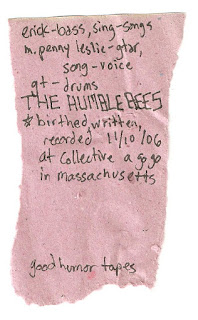 erick-bass, sing-songs
m. penny leslie-gtar,
song-voice
qt-drums
THE HUMBLE BEES
* birthed, written,
recorded 11/10 '06
at Collective a go go
in massachusetts
good humor tapes